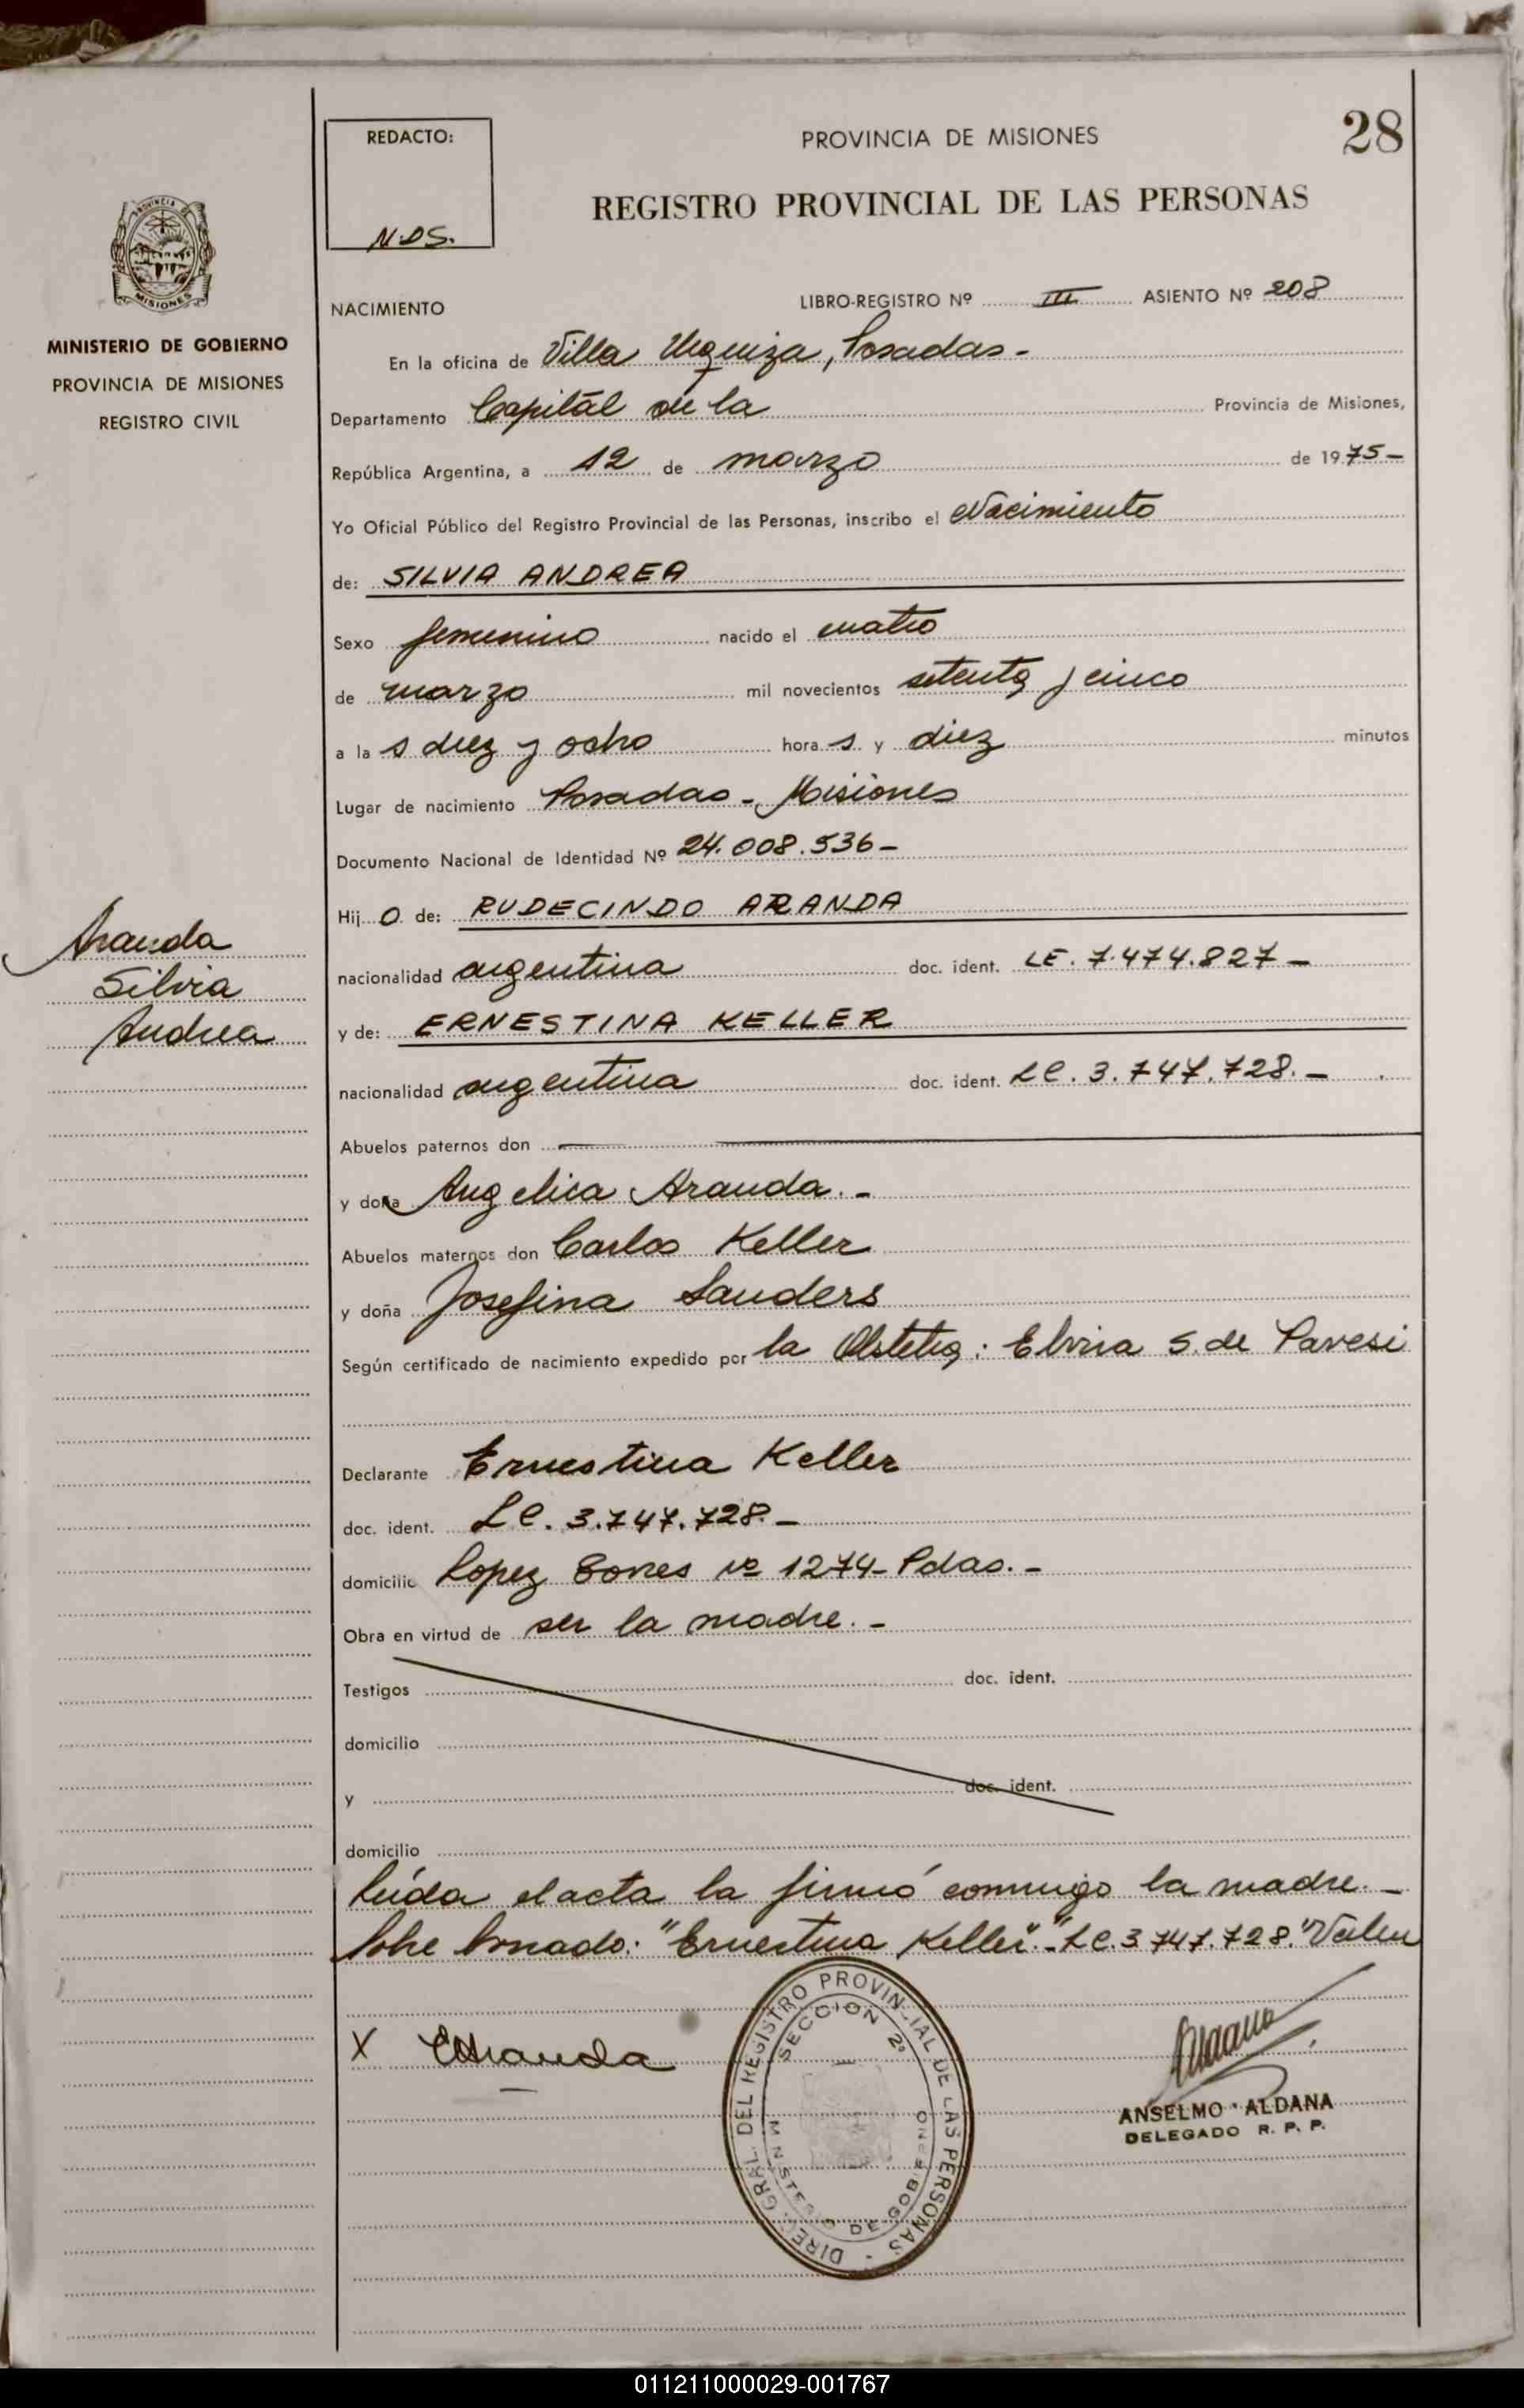 28
REDACTO:
N.DS.
PROVINCIA DE MISIONES
REGISTRO PROVINCIAL DE LAS PERSONAS
PROVINCIA DE
MISIONES
MINISTERIO DE GOBIERNO
PROVINCIA DE MISIONES
REGISTRO CIVIL
NACIMIENTO
LIBRO-REGISTRO Nº III ASIENTO Nº 208
En la oficina de Villa Urquiza, Posadas-
Departamento Capital de la Provincia de Misiones,
República Argentina, a 12 de marzo de 1975-
Yo Oficial Público del Registro Provincial de las Personas, inscribo el Nacimiento
de: SILVIA ANDREA
Sexo femenino nacido el cuatro
de marzo mil novecientos setenta y cinco
a la s diez y ocho hora s y diez minutos
Lugar de nacimiento Posadas - Misiones
Documento Nacional de Identidad Nº 24.008.536-
Hij O de: RUDECINDO ARANDA
Aranda
Silvia
Andrea
nacionalidad argentina doc. ident. LE. 7.474.827-
y de: ERNESTINA KELLER
nacionalidad argentina doc. ident. LC. 3.747.728.-
Abuelos paternos don
y doña Angelica Aranda.-
Abuelos maternos don Carlos Keller
y doña Josefina Sanders
Según certificado de nacimiento expedido por la Obstetra: Elvira S. de Pavesi
Declarante Ernestina Keller
doc. ident. LC. 3.747.728.-
domicilio Lopez Torres Nº 1274- Pdas.-
Obra en virtud de ser la madre.-
Testigos doc. ident.
domicilio
y doc. ident.
domicilio
Leída el acta la firmó conmigo la madre.-
Sobre borrado: "Ernestina Keller".-"LC. 3.747.728." Valen
X EAranda
DIREC. GRAL. DEL REGISTRO PROVINCIAL DE LAS PERSONAS -
SECCION 2º
MINISTERIO DE GOBIERNO
Aldana
ANSELMO ALDANA
DELEGADO R. P. P.
011211000029-001767